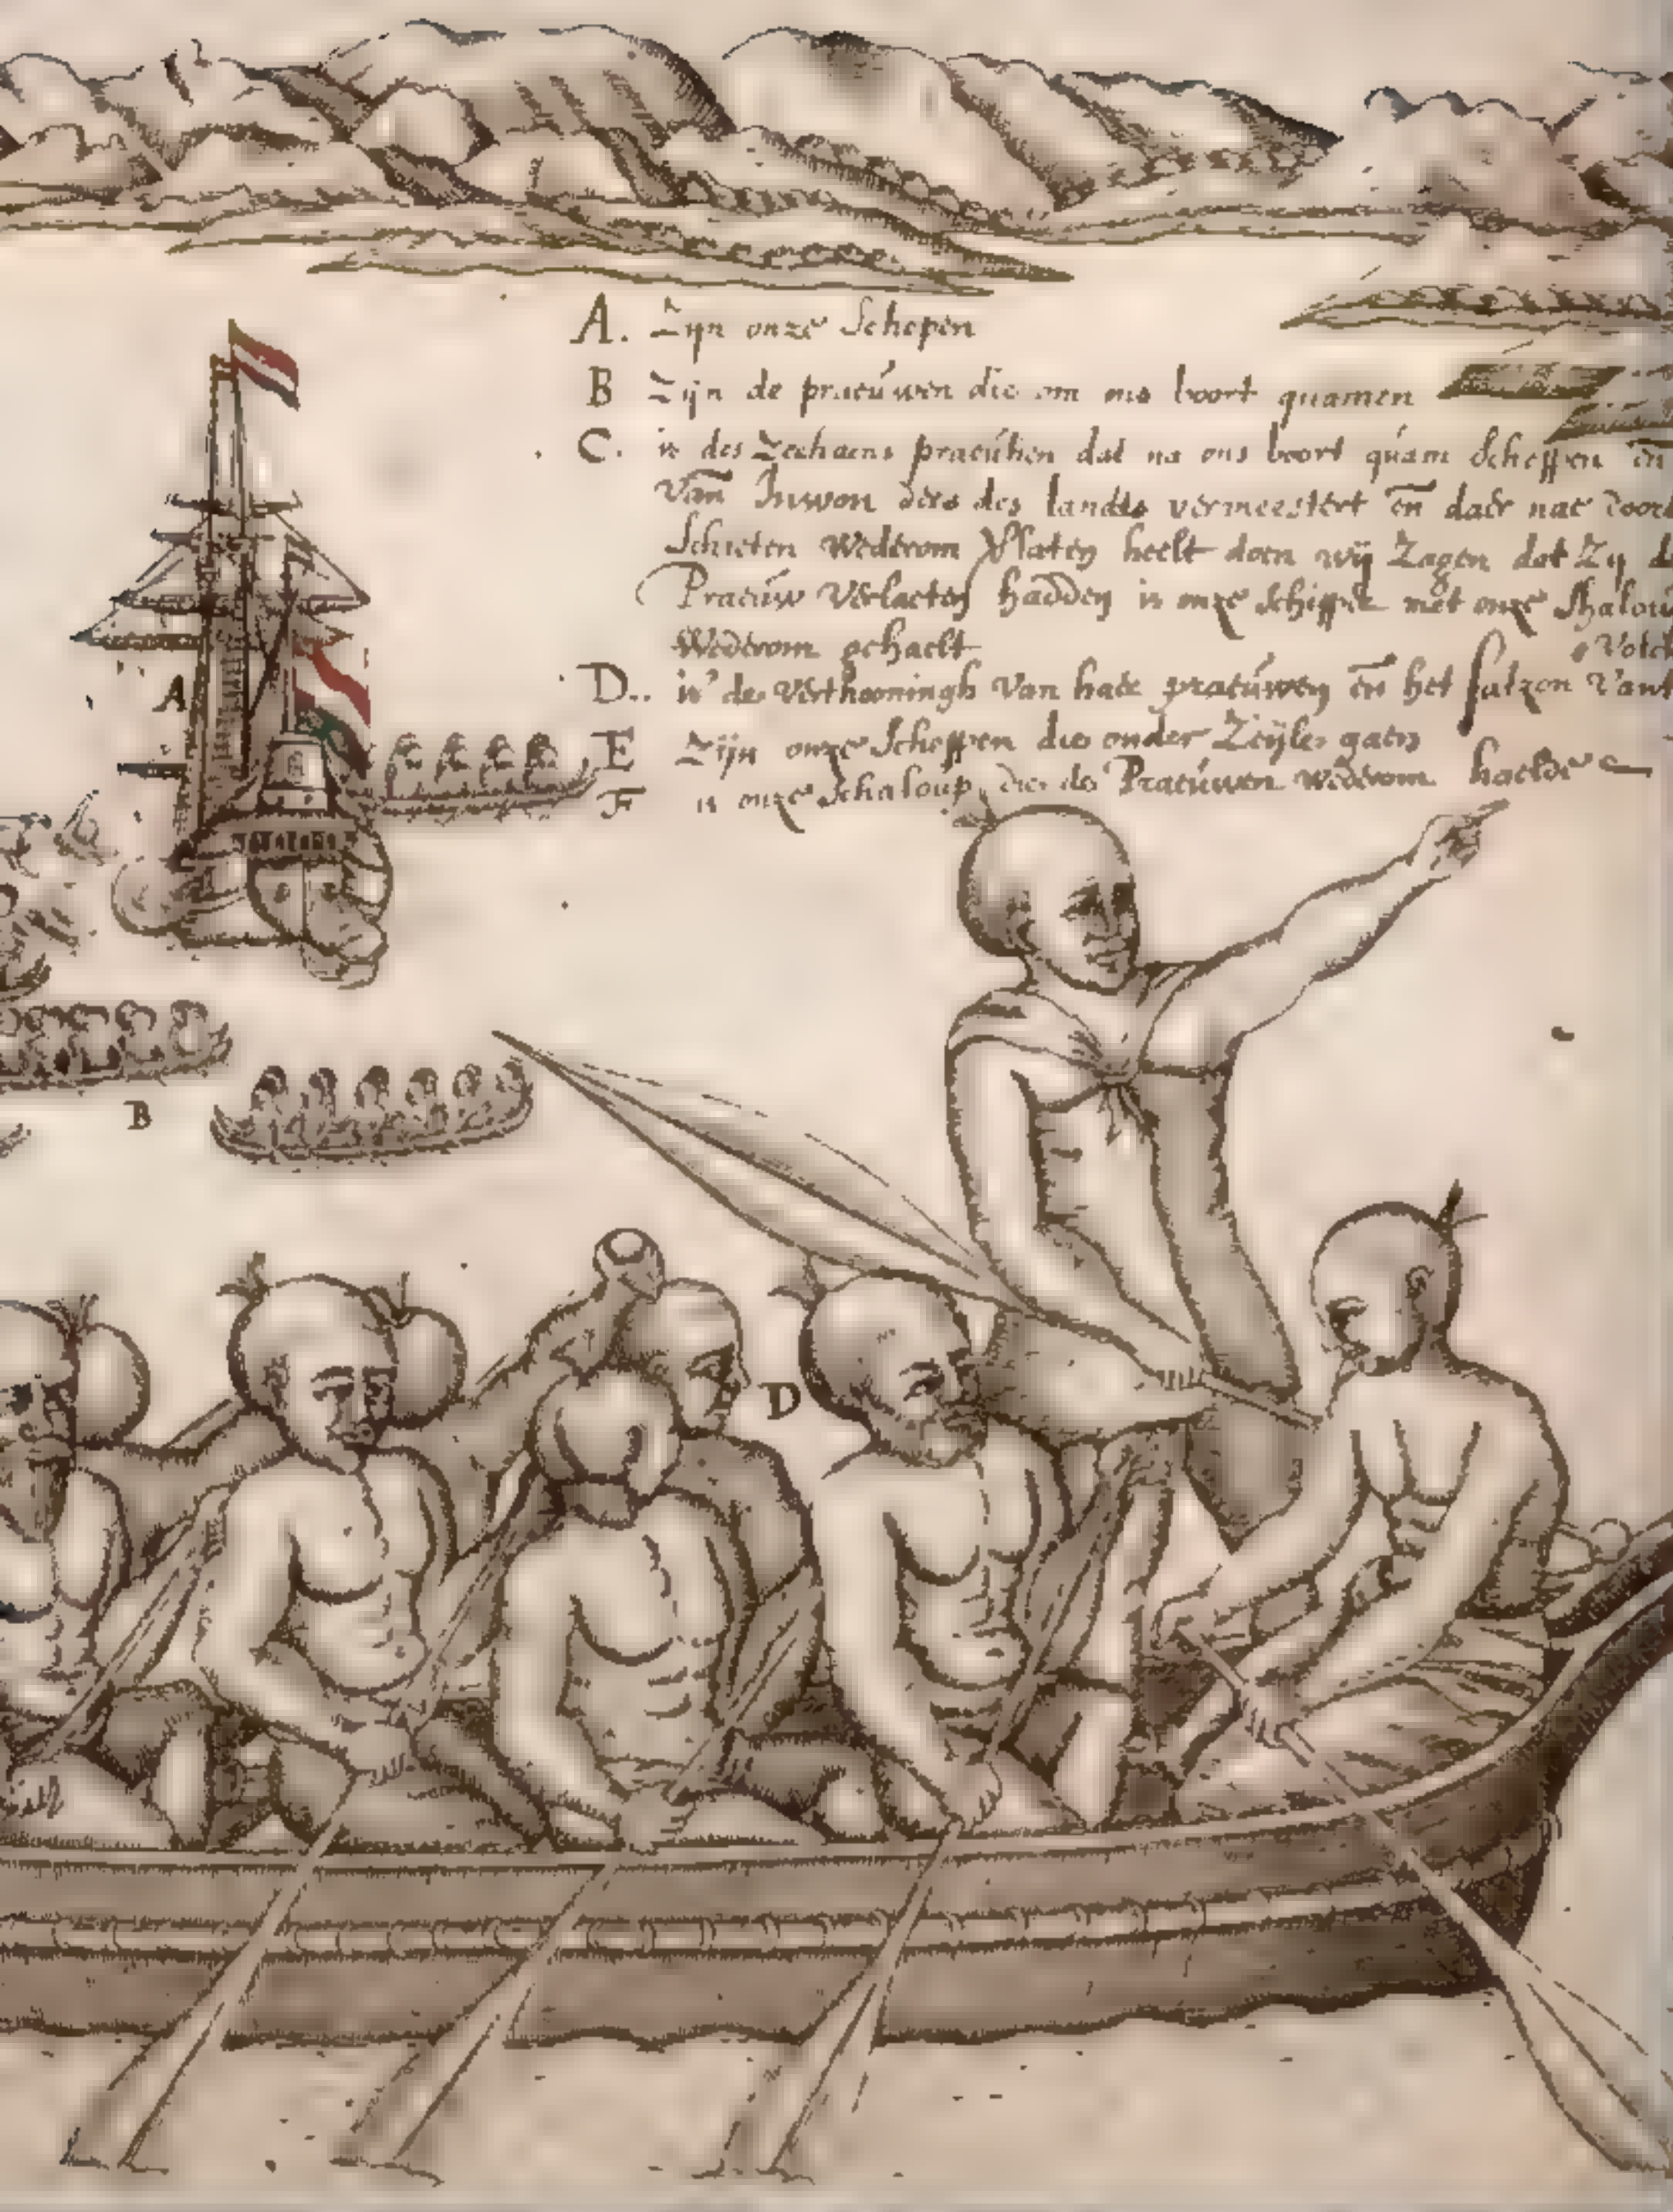 A. Zijn onze Schepen
B Zijn de praeúwen die om ons boort quamen
C. is des Zeehaens praeútien dat na ons boort quam Scheppen en
van Inwon ders des landts vermeestert en daer nae door
Schieten wederom verlaten heelt doen wij Zagen dat Zij
Praeúw verlaeten hadden is onze Schipper met onze Shalou
Wederom gehaelt
Volck
D.. is de verthooningh van hare praeúwen en het fatzon vant
E Zijn onze Scheppen die onder Zeijle gaen
F is onze Schaloup, die de Praeúwen wederom haelde
A
B
D